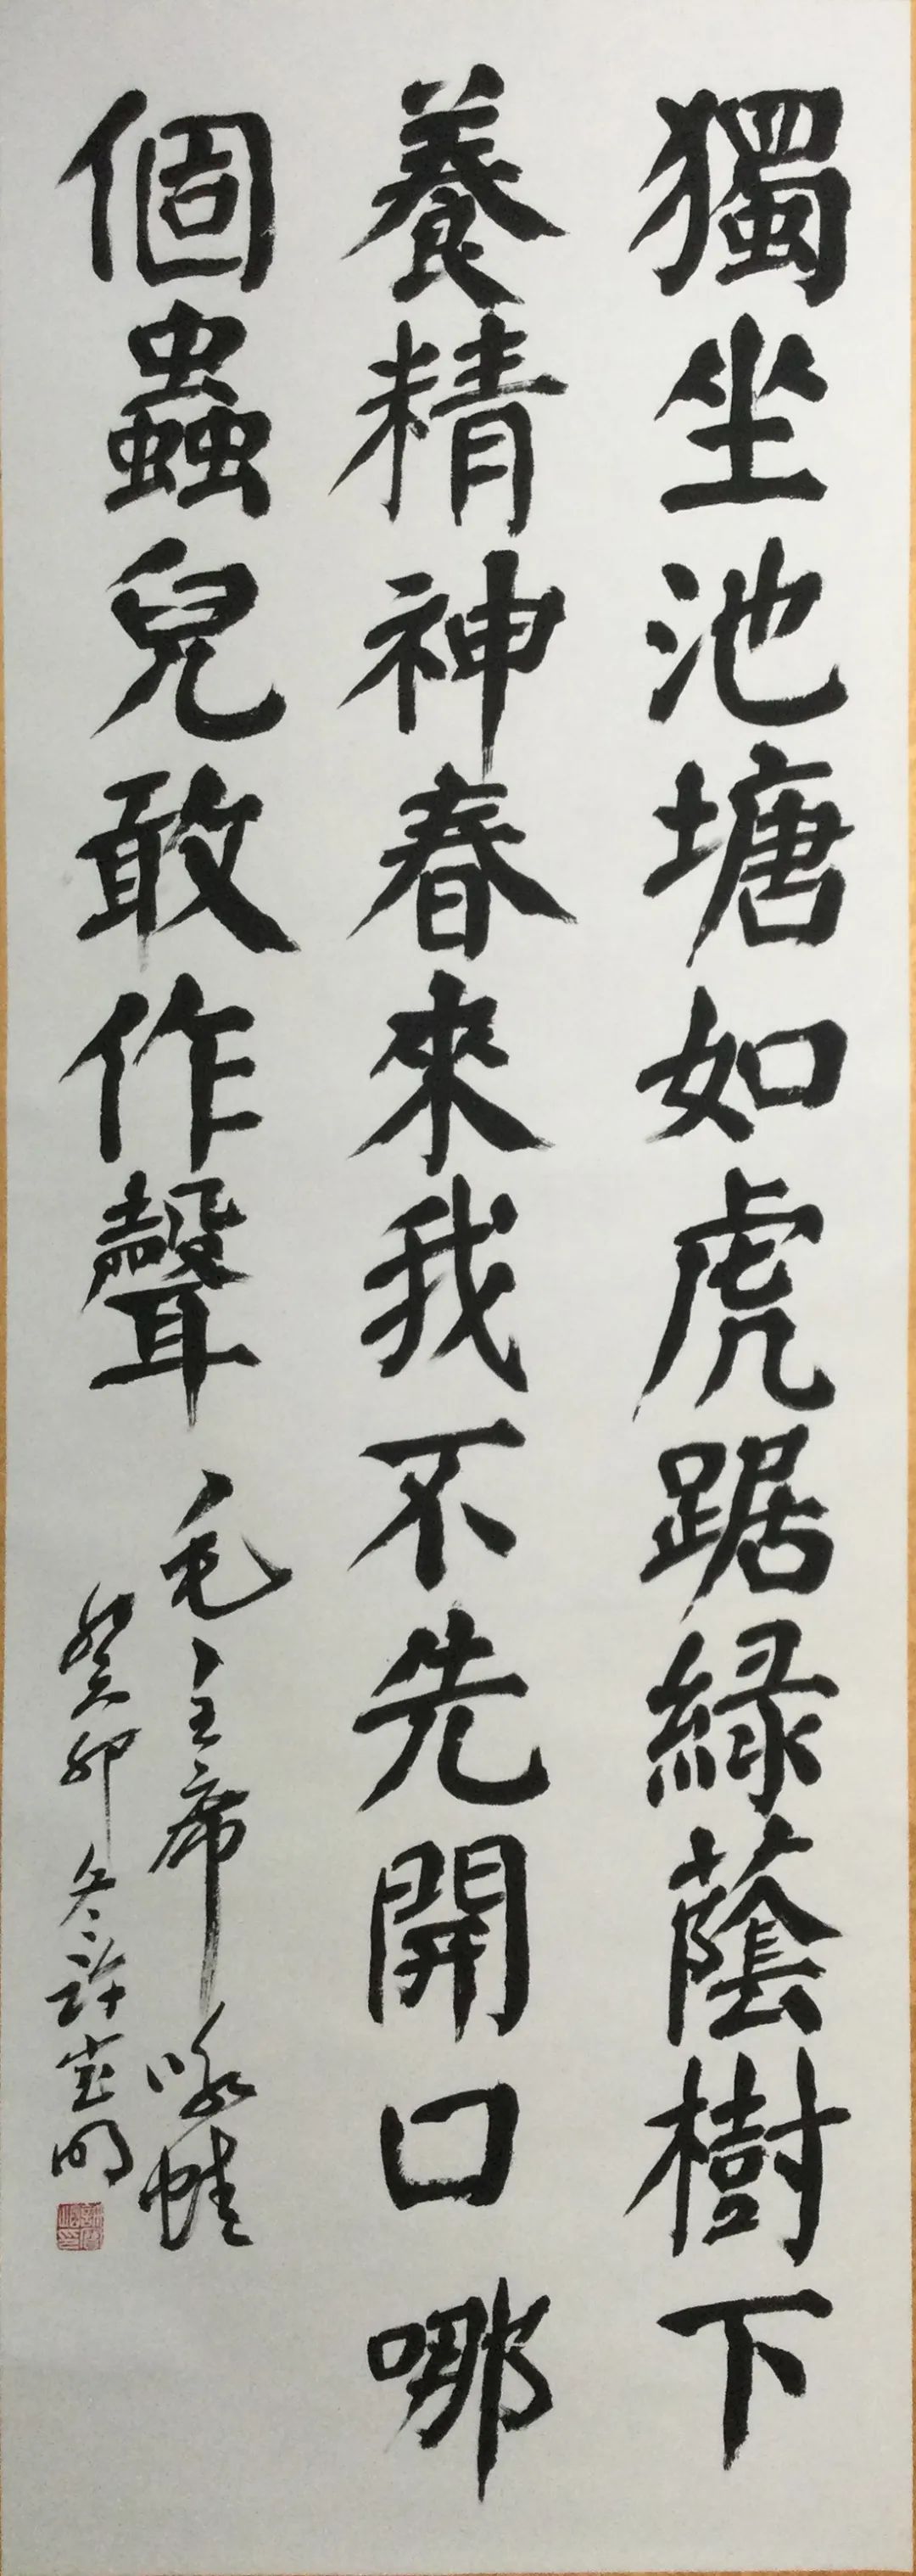 獨坐池塘如虎踞綠蔭樹下
養精神春來我不先開口哪
個蟲兒敢作聲
毛主席咏蛙
癸卯冬許宏明